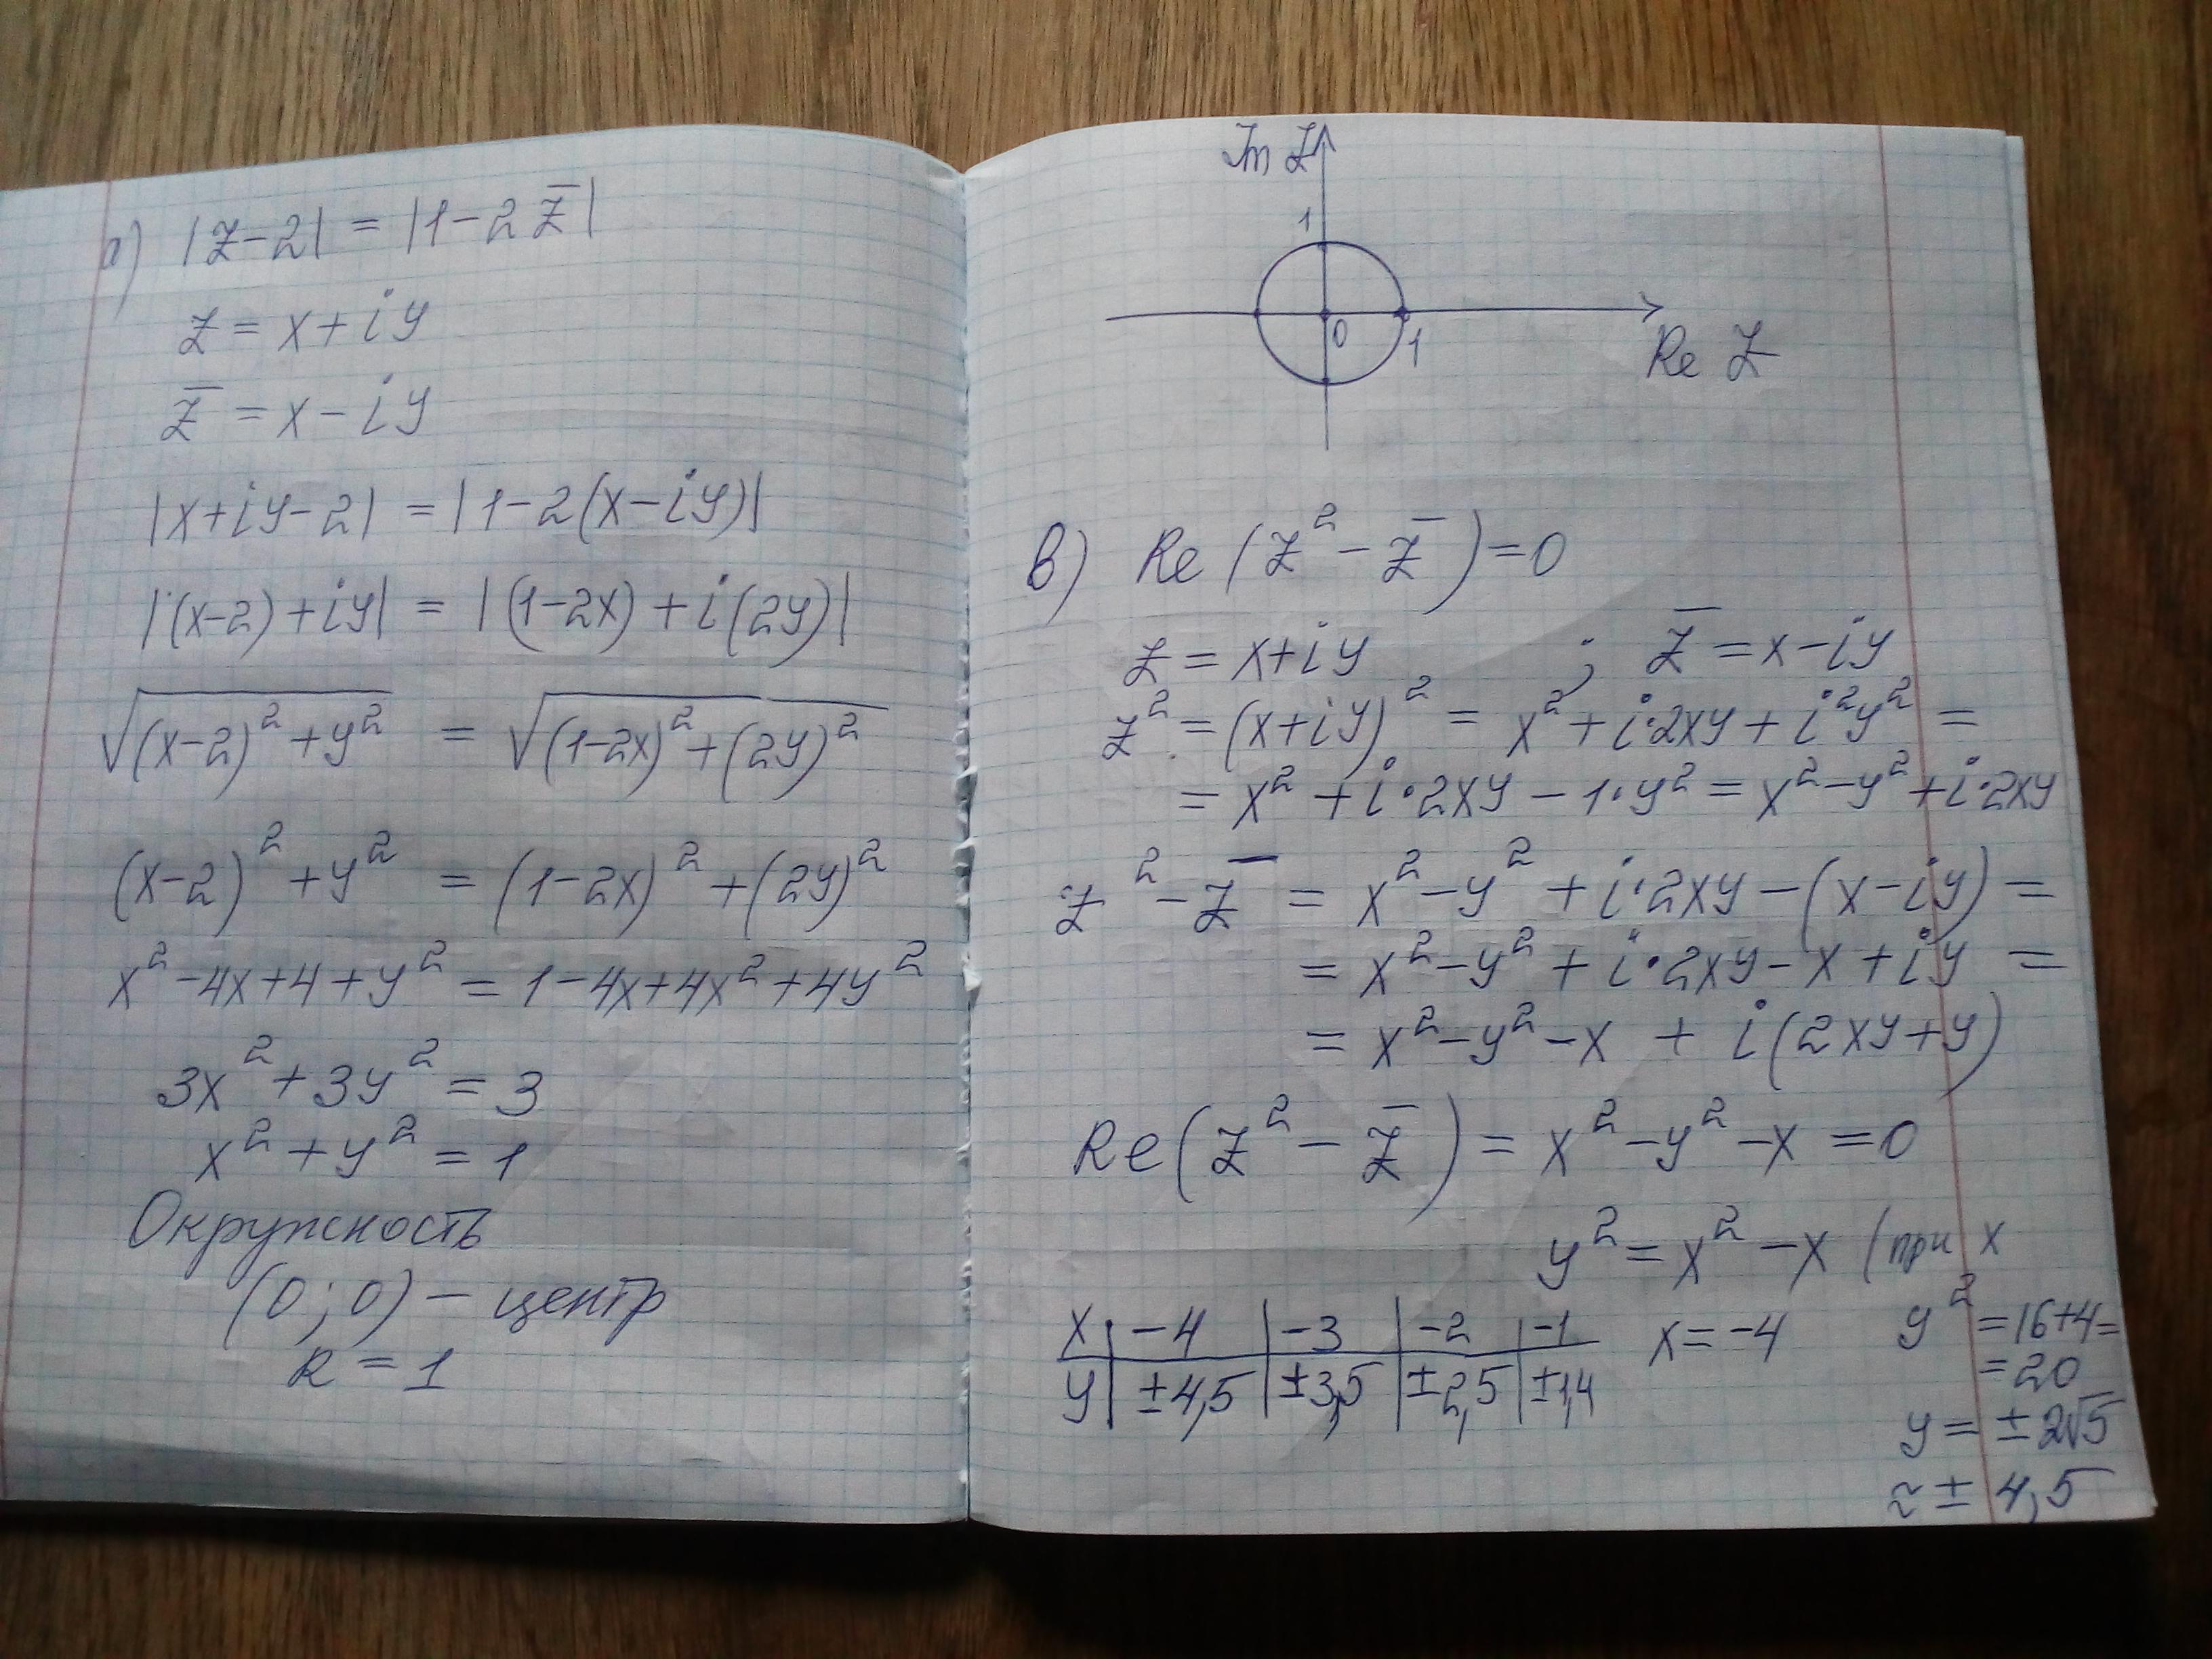 а) |z-2| = |1-2z̅|
z = x+iy
z̅ = x-iy
|x+iy-2| = |1-2(x-iy)|
|(x-2)+iy| = |(1-2x)+i(2y)|
√((x-2)²+y²) = √((1-2x)²+(2y)²)
(x-2)²+y² = (1-2x)²+(2y)²
x²-4x+4+y² = 1-4x+4x²+4y²
3x²+3y² = 3
x²+y² = 1
Окружность
(0;0) - центр
R = 1
Im z
1
0 1
Re z
в) Re(z²-z̅)=0
z = x+iy ; z̅ = x-iy
z² = (x+iy)² = x²+i·2xy+i²y² =
= x²+i·2xy-1·y² = x²-y²+i·2xy
z²-z̅ = x²-y²+i·2xy-(x-iy) =
= x²-y²+i·2xy-x+iy =
= x²-y²-x + i(2xy+y)
Re(z²-z̅) = x²-y²-x = 0
y² = x²-x (при x
x | -4 | -3 | -2 | -1
y | ±4,5 | ±3,5 | ±2,5 | ±1,4
x = -4 y² = 16+4=
= 20
y = ±2√5
≈ ± 4,5